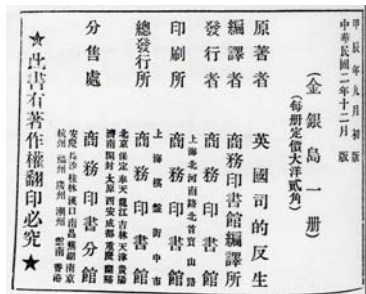 甲辰年九月初版
中華民國二年十二月 版
(金銀島一冊)
(每冊定價大洋貳角)
原著者 英國司的反生
編譯者 商務印書館編譯所
發行者 商務印書館
上海北河南路北首寶山路
印刷所 商務印書館
上海棋盤街中市
總發行所 商務印書館
北京保定奉天龍江吉林天津
濟南開封太原西安成都重慶
分售處 商務印書分館
安慶長沙桂林漢口南昌蕪湖南京
杭州福州廣州潮州 香港
★此書有著作權翻印必究★